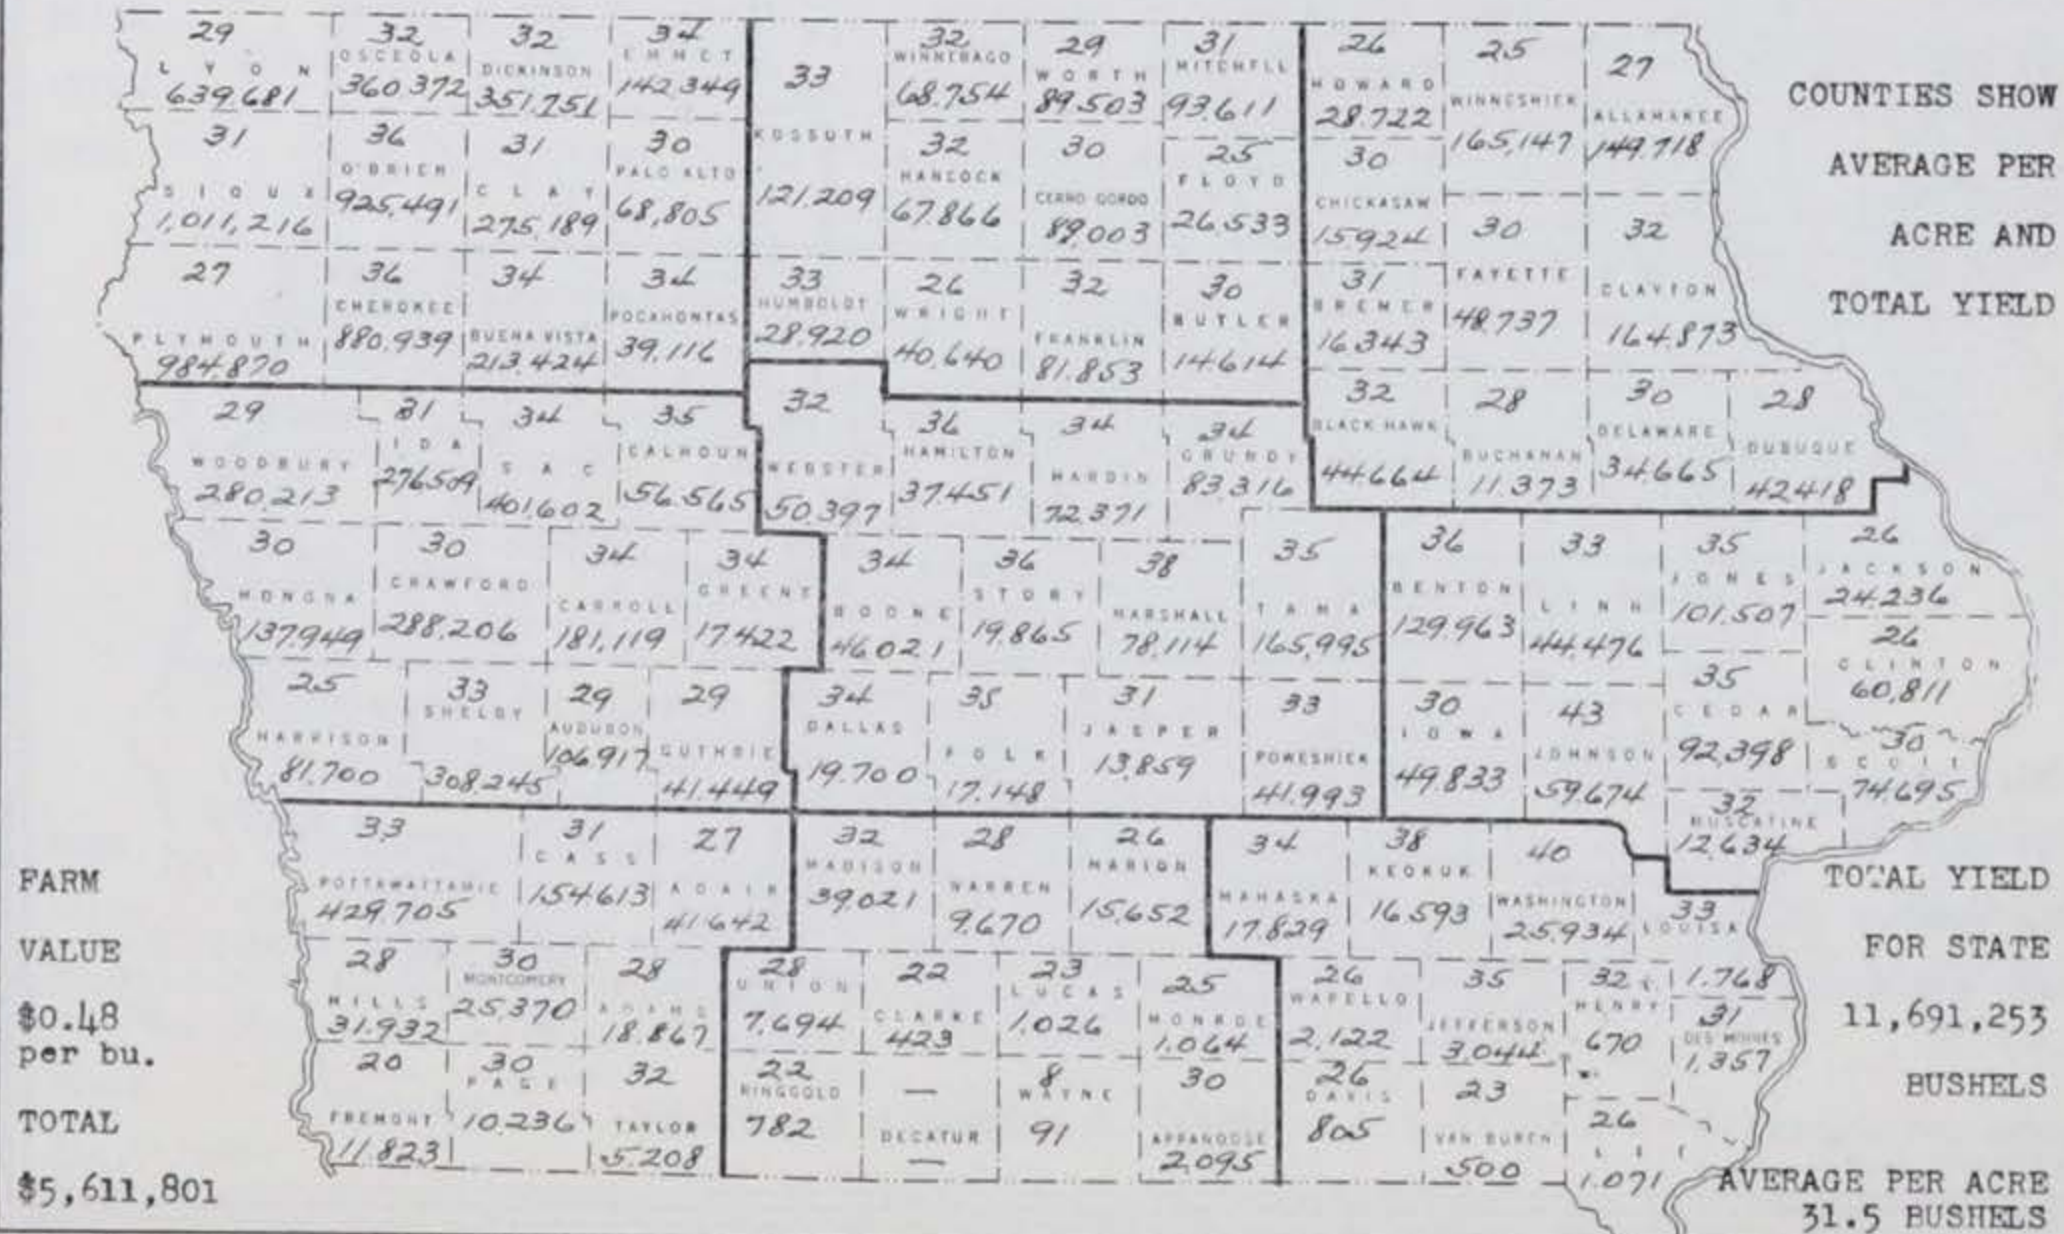 COUNTIES SHOW
AVERAGE PER
ACRE AND
TOTAL YIELD
29
LYON
639,681
32
OSCEOLA
360,372
32
DICKINSON
351,751
34
EMMET
142,349
33
KOSSUTH
121,209
32
WINNEBAGO
68,754
29
WORTH
89,503
31
MITCHELL
93,611
26
HOWARD
28,722
25
WINNESHIEK
165,147
27
ALLAMAKEE
149,718
31
SIOUX
1,011,216
36
O'BRIEN
925,491
31
CLAY
275,189
30
PALO ALTO
68,805
32
HANCOCK
67,866
30
CERRO GORDO
89,003
25
FLOYD
26,533
30
CHICKASAW
15924
30
FAYETTE
48,737
32
CLAYTON
164,873
27
PLYMOUTH
984,870
36
CHEROKEE
880,939
34
BUENA VISTA
213,424
34
POCAHONTAS
39,116
33
HUMBOLDT
28,920
26
WRIGHT
40,640
32
FRANKLIN
81,853
30
BUTLER
14,614
31
BREMER
16,343
29
WOODBURY
280,213
31
IDA
276509
34
SAC
401,602
35
CALHOUN
56,565
32
WEBSTER
50,397
36
HAMILTON
37,451
34
HARDIN
72,371
34
GRUNDY
83,316
32
BLACK HAWK
44,664
28
BUCHANAN
11,373
30
DELAWARE
34,665
28
DUBUQUE
42,418
30
MONONA
137,949
30
CRAWFORD
288,206
34
CARROLL
181,119
34
GREENE
17,422
34
BOONE
46,021
36
STORY
19,865
38
MARSHALL
78,114
35
TAMA
165,995
36
BENTON
129,963
33
LINN
44,476
35
JONES
101,507
26
JACKSON
24,236
26
CLINTON
60,811
25
HARRISON
81,700
33
SHELBY
308,245
29
AUDUBON
106,917
29
GUTHRIE
41,449
34
DALLAS
19,700
35
POLK
17,148
31
JASPER
13,859
33
POWESHIEK
41,993
30
IOWA
49,833
43
JOHNSON
59,674
35
CEDAR
92,398
30
SCOTT
74,695
32
MUSCATINE
12,634
33
POTTAWATTAMIE
429,705
31
CASS
154,613
27
ADAIR
41,642
32
MADISON
39,021
28
WARREN
9,670
26
MARION
15,652
34
MAHASKA
17,829
38
KEOKUK
16,593
40
WASHINGTON
25,934
33
LOUISA
1,768
28
MILLS
31,932
30
MONTGOMERY
25,370
28
ADAMS
18,867
28
UNION
7,694
22
CLARKE
423
23
LUCAS
1,026
25
MONROE
1,064
26
WAPELLO
2,122
35
JEFFERSON
3,044
32
HENRY
670
31
DES MOINES
1,357
20
FREMONT
11,823
30
PAGE
10,236
32
TAYLOR
5,208
22
RINGGOLD
782
—
DECATUR
—
8
WAYNE
91
30
APPANOOSE
2,095
26
DAVIS
805
23
VAN BUREN
500
26
LEE
1,071
FARM
VALUE
$0.48
per bu.
TOTAL
$5,611,801
TOTAL YIELD
FOR STATE
11,691,253
BUSHELS
AVERAGE PER ACRE
31.5 BUSHELS